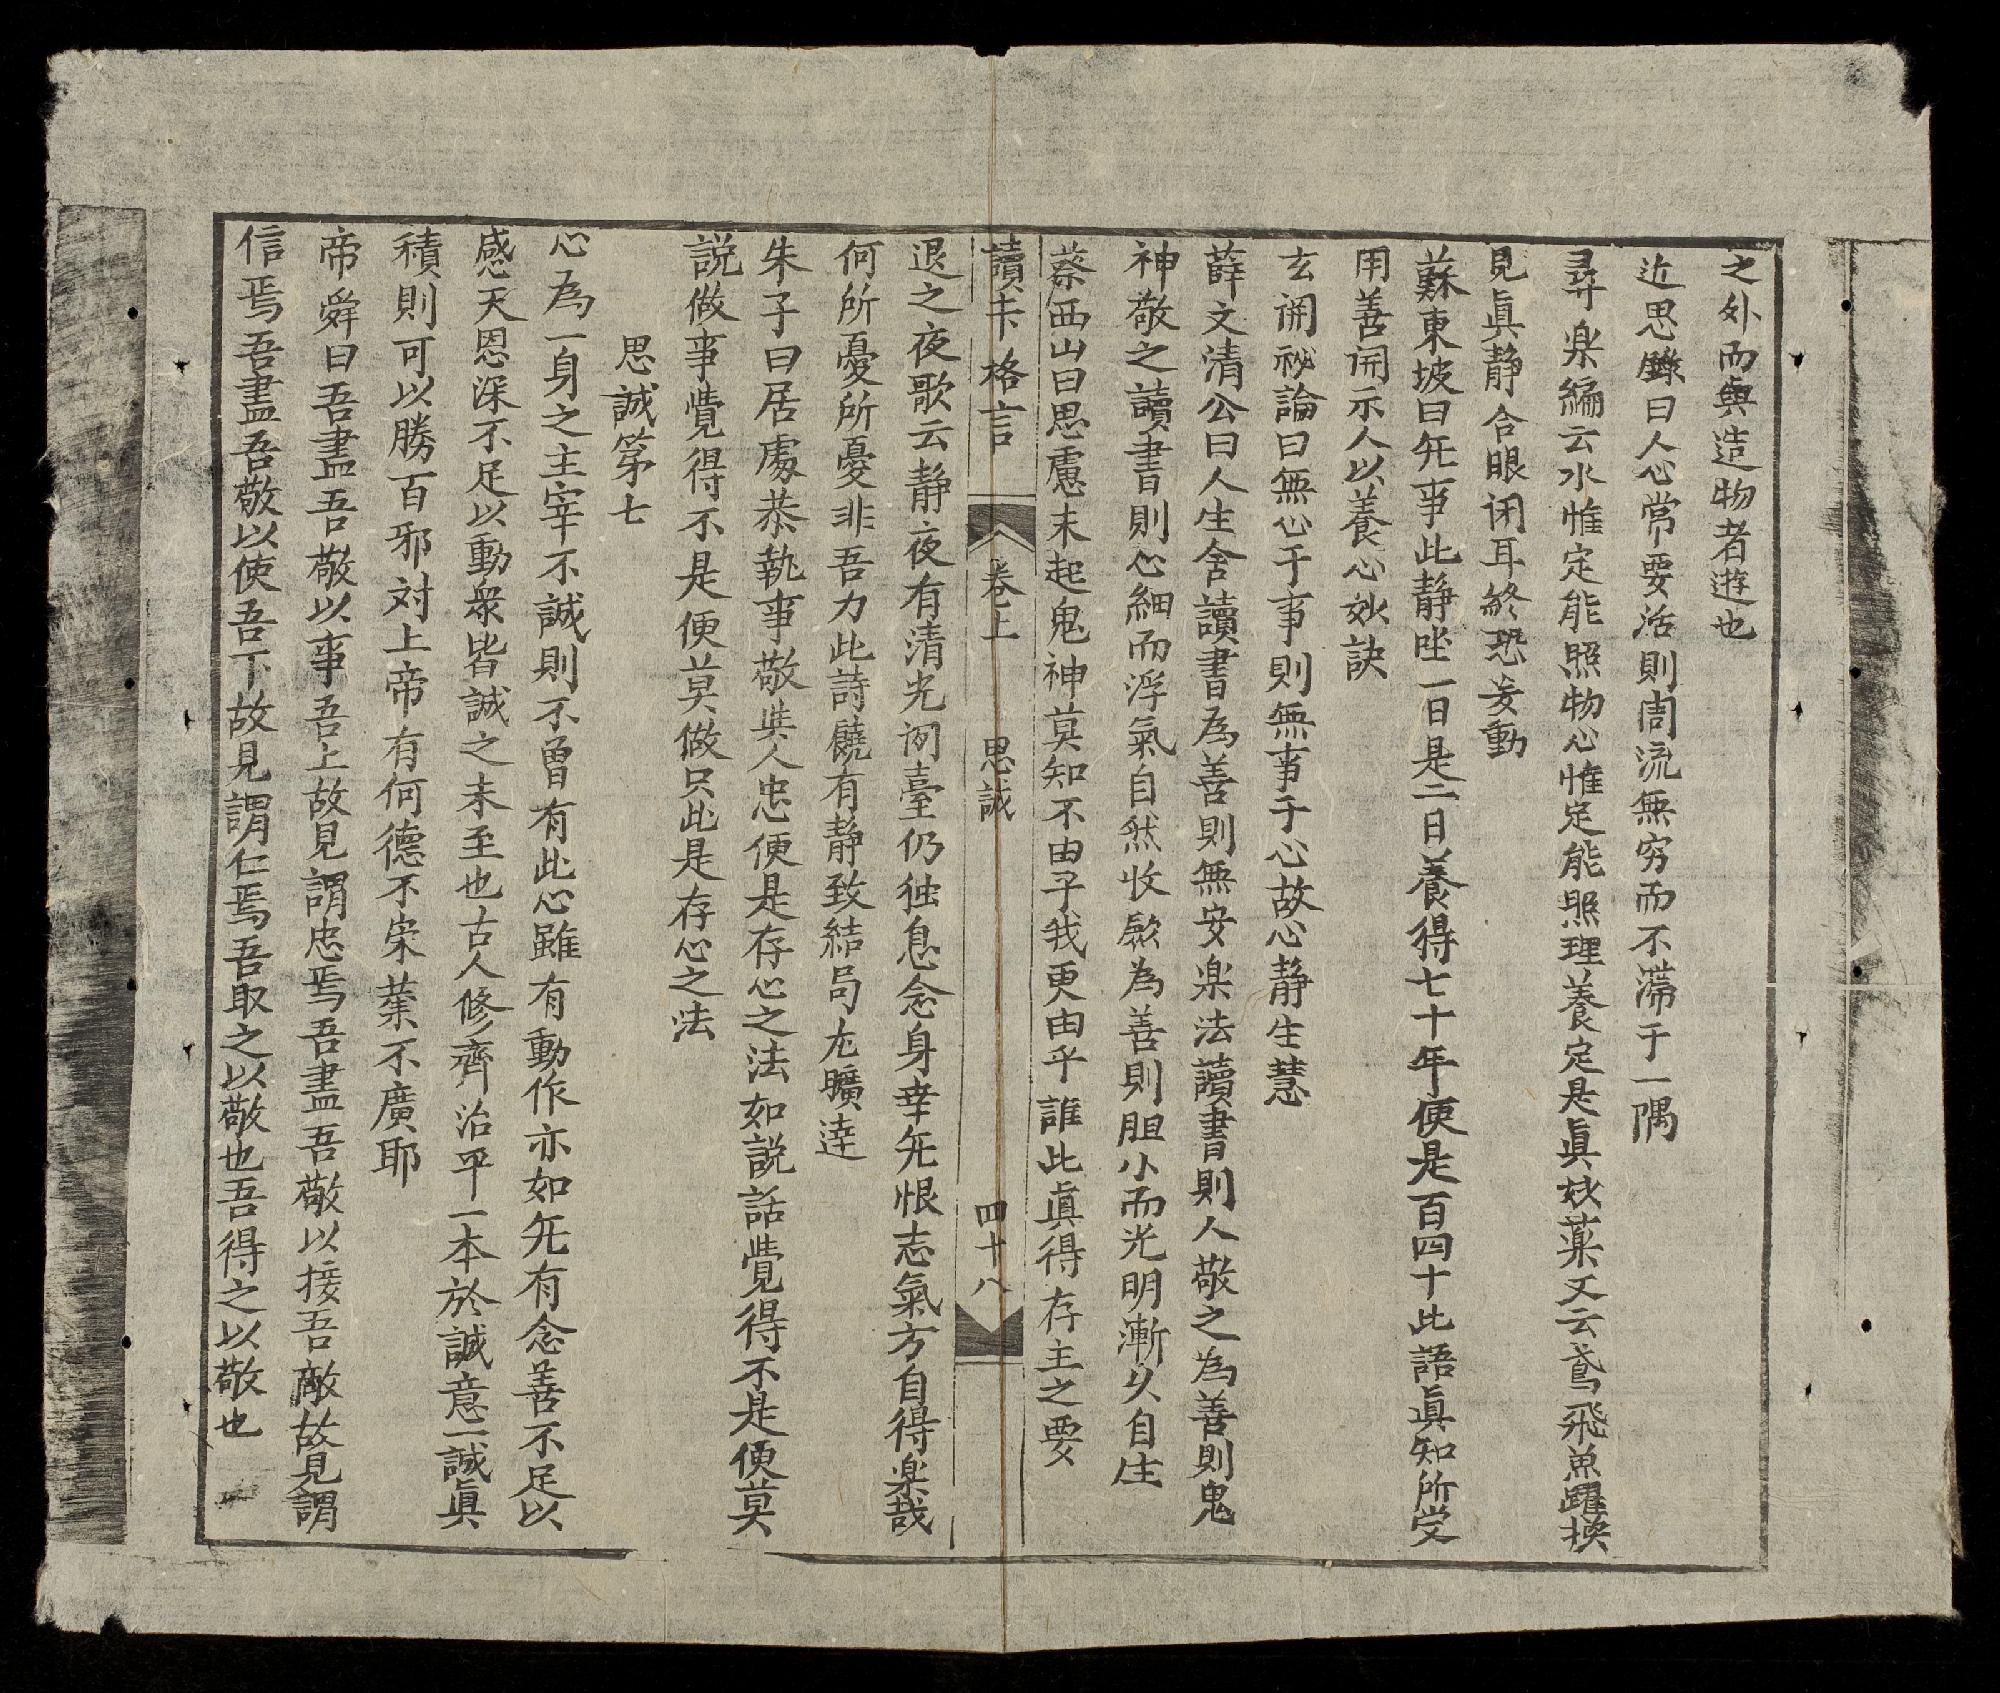 之外而與造物者遊也
近思錄曰人心常要活則周流無穷而不滞于一隅
尋楽編云水惟定能照物心惟定能照理養定是真妙薬又云鳶飛魚躍換
見真静合眼闭耳終恐妄動
蘇東坡曰旡事此静坐一日是二日養得七十年便是百四十此語真知所受
用善開示人以養心妙訣
玄開秘論曰無心于事則無事于心故心静生慧
薛文清公曰人生舍讀書為善則無安楽法讀書則人敬之為善則鬼
神敬之讀書則心細而浮氣自然收歛為善則胆小而光明漸久自生
蔡西山曰思慮未起鬼神莫知不由乎我更由乎誰此真得存主之要
讀卡格言 卷上 思誠 四十八
退之夜歌云静夜有清光闲臺仍独息念身幸旡恨志氣方自得楽哉
何所憂所憂非吾力此詩饒有静致結局尤曠逹
朱子曰居處恭執事敬與人忠便是存心之法如説話覺得不是便莫
説做事覺得不是便莫做只此是存心之法
思誠第七
心為一身之主宰不誠則不曾有此心雖有動作亦如旡有念善不足以
感天恩深不足以動衆皆誠之未至也古人修齊治平一本於誠意一誠真
積則可以勝百邪対上帝有何德不崇業不廣耶
帝舜曰吾盡吾敬以事吾上故見謂忠焉吾盡吾敬以接吾敵故見謂
信焉吾盡吾敬以使吾下故見謂仁焉吾取之以敬也吾得之以敬也